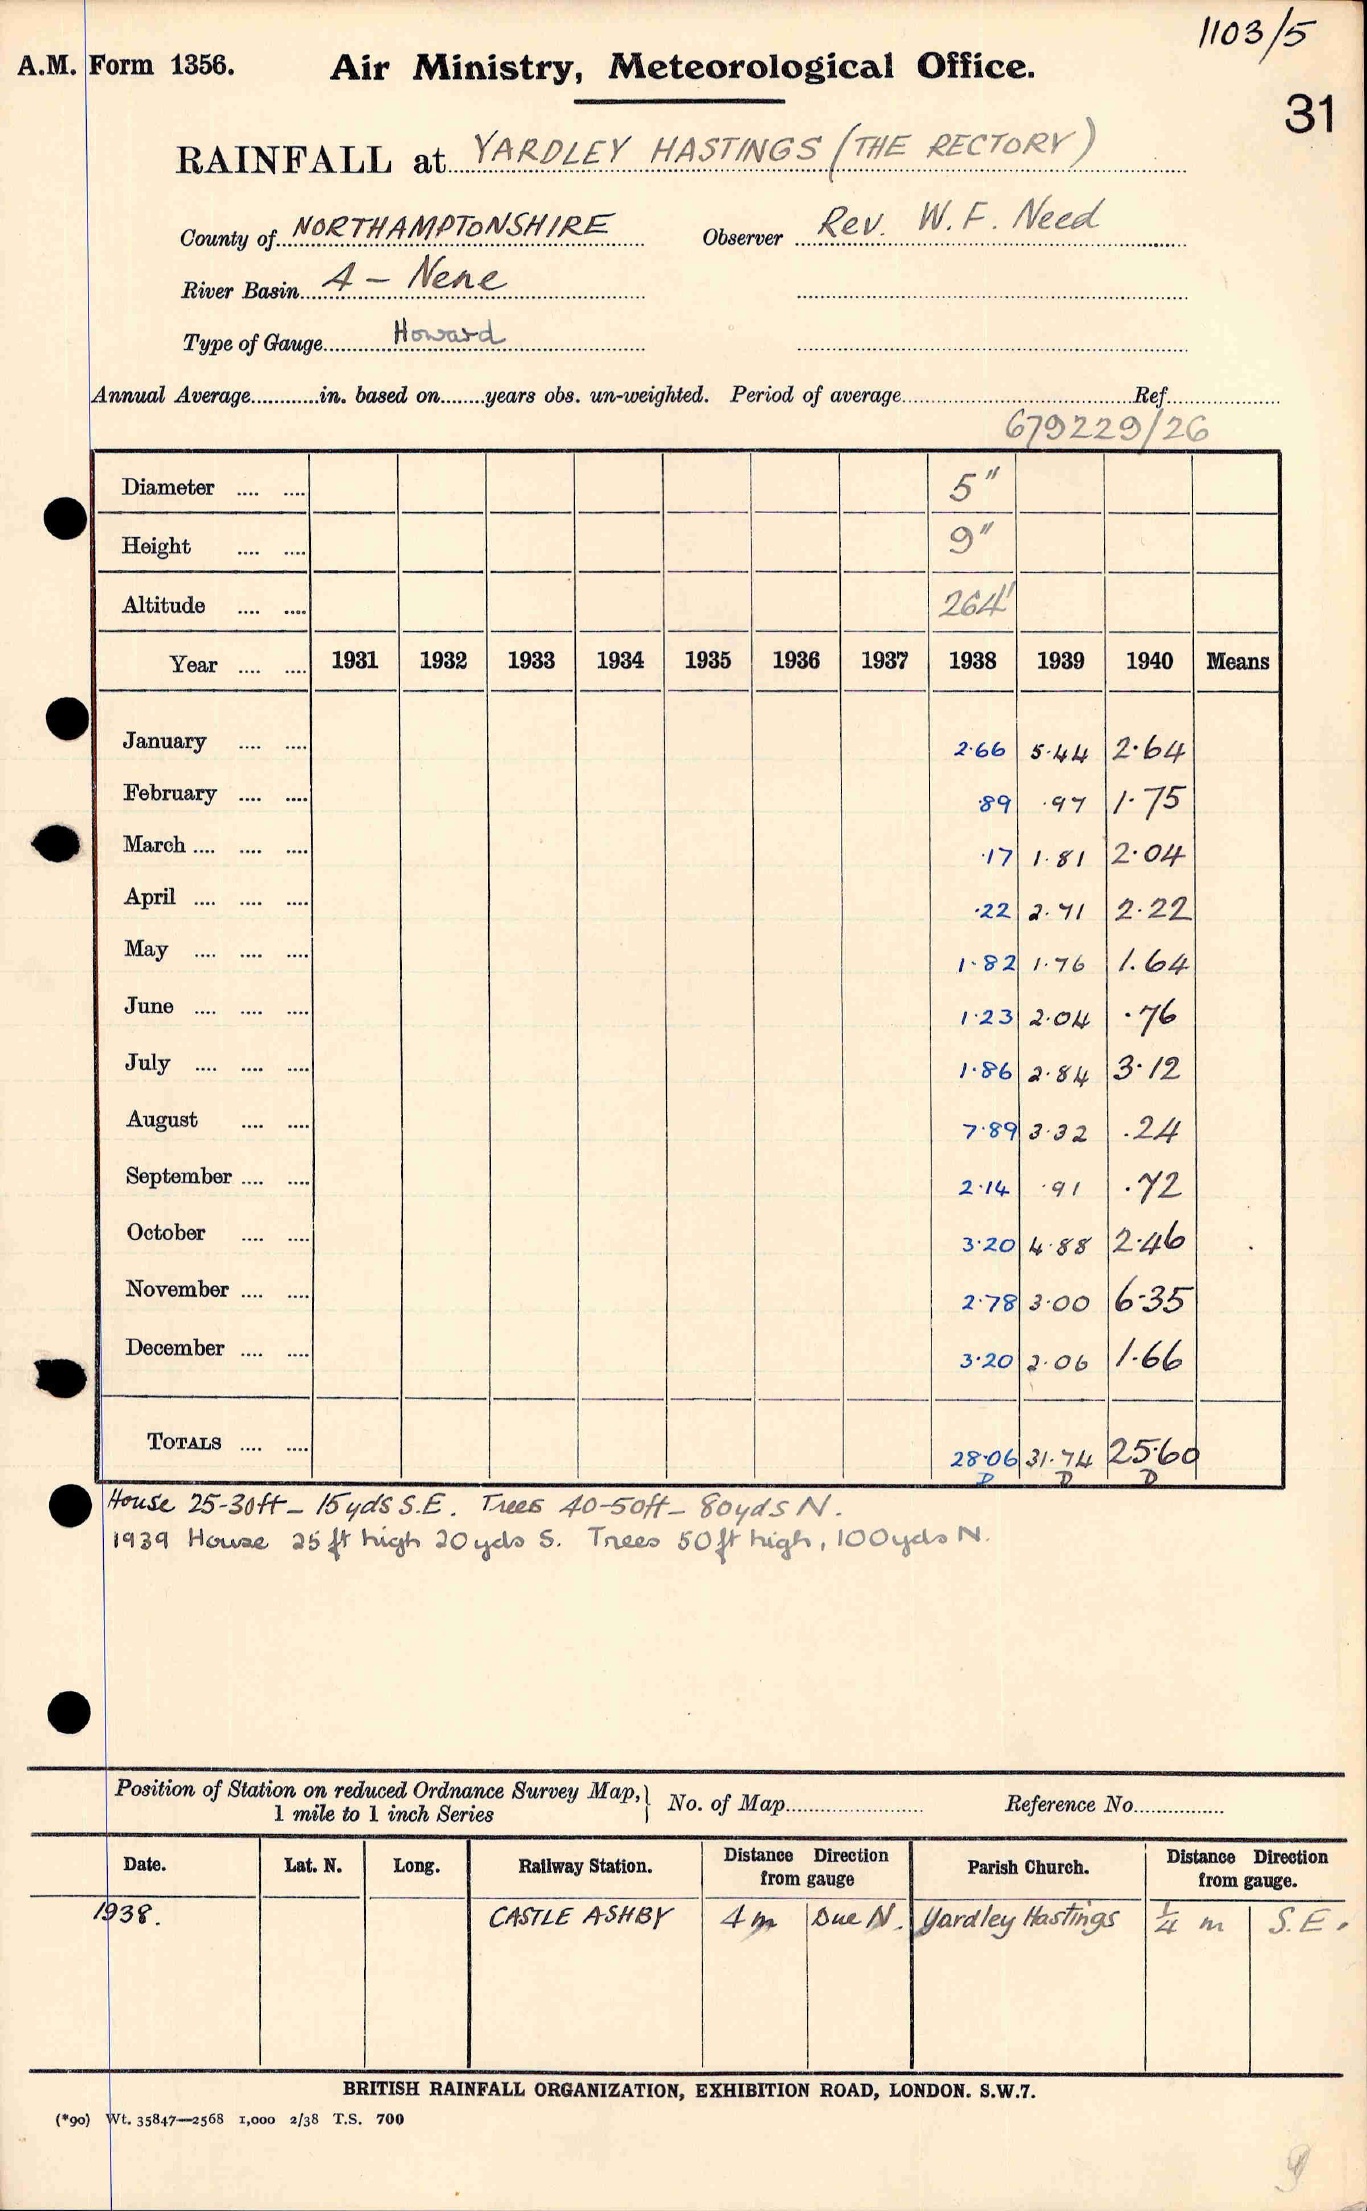 1103/5
A.M. Form 1356. Air Ministry, Meteorological Office.
31
RAINFALL at YARDLEY HASTINGS (THE RECTORY)
County of NORTHAMPTONSHIRE Observer Rev. W.F. Need
River Basin A - Nene
Type of Gauge Howard
Annual Average............in. based on........years obs. un-weighted. Period of average............ Ref............
679229/26
Diameter .... .... 5"
Height .... .... 9"
Altitude .... .... 264'
Year .... .... 1931 1932 1933 1934 1935 1936 1937 1938 1939 1940 Means
January .... .... 2·66 5·44 2·64
February .... .... ·89 ·97 1·75
March .... .... .... ·17 1·81 2·04
April .... .... .... ·22 2·71 2·22
May .... .... .... 1·82 1·76 1·64
June .... .... .... 1·23 2·04 ·76
July .... .... .... 1·86 2·84 3·12
August .... .... 7·89 3·32 ·24
September .... .... 2·14 ·91 ·72
October .... .... 3·20 4·88 2·46
November .... .... 2·78 3·00 6·35
December .... .... 3·20 2·06 1·66
TOTALS .... .... 28·06 31·74 25·60
D D D
House 25-30ft - 15yds S.E. Trees 40-50ft - 80yds N.
1939 House 25ft high 20yds S. Trees 50ft high, 100yds N.
Position of Station on reduced Ordnance Survey Map, } No. of Map............ Reference No............
1 mile to 1 inch Series
Date. Lat. N. Long. Railway Station. Distance Direction from gauge Parish Church. Distance Direction from gauge.
1938. CASTLE ASHBY 4 m Due N. Yardley Hastings 1/4 m S.E.
BRITISH RAINFALL ORGANIZATION, EXHIBITION ROAD, LONDON. S.W.7.
(*90) Wt. 35847—2568 1,000 2/38 T.S. 700